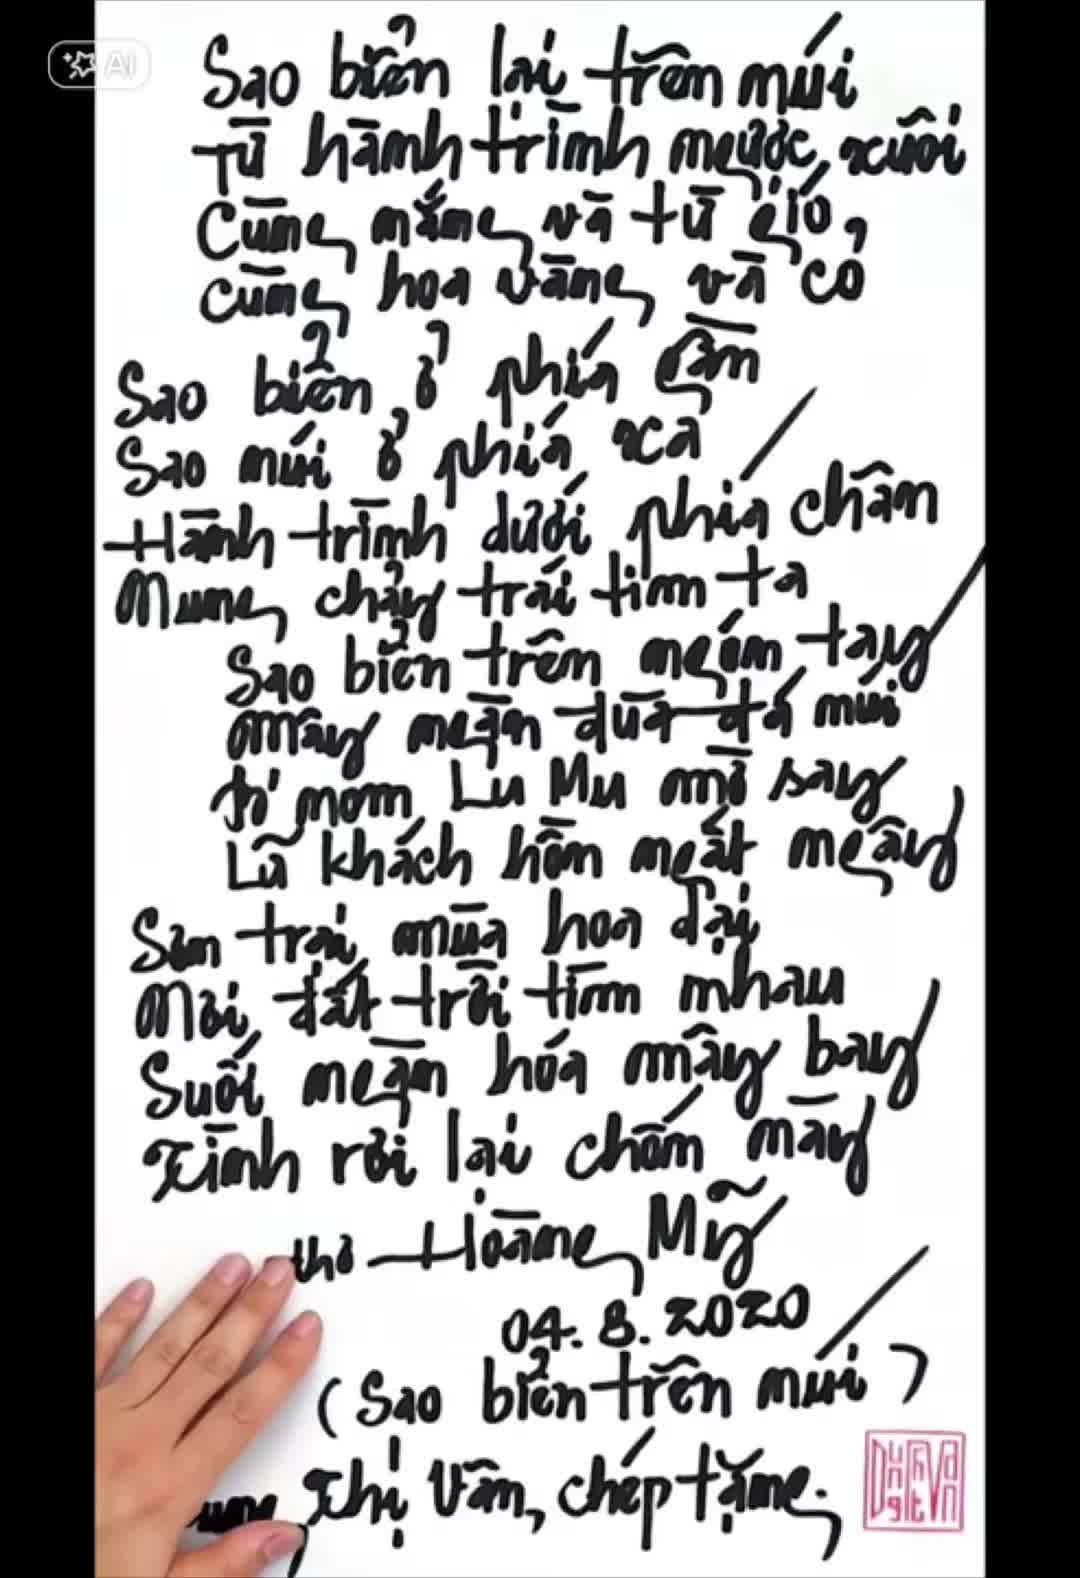 AI
Sao biển lại trên núi
Từ hành trình ngược, xuôi
Cùng nắng và từ gió,
Cùng hoa vàng và cỏ
Sao biển ở phía gần
Sao núi ở phía xa
Hành trình dưới phía chân
Nung chảy trái tim ta
Sao biển trên ngón tay
Mây ngàn đùa đá núi
từ nom Lu Mu mờ say
Lữ khách hồn ngất ngây
Sơn trại mùa hoa dại
Nơi đất trời tìm nhau
Suối ngàn hóa mây bay
Tình rơi lại chốn này
thơ Hoàng Mỹ
04.8.2020
(Sao biển trên núi)
Thị Vân, chép tặng.